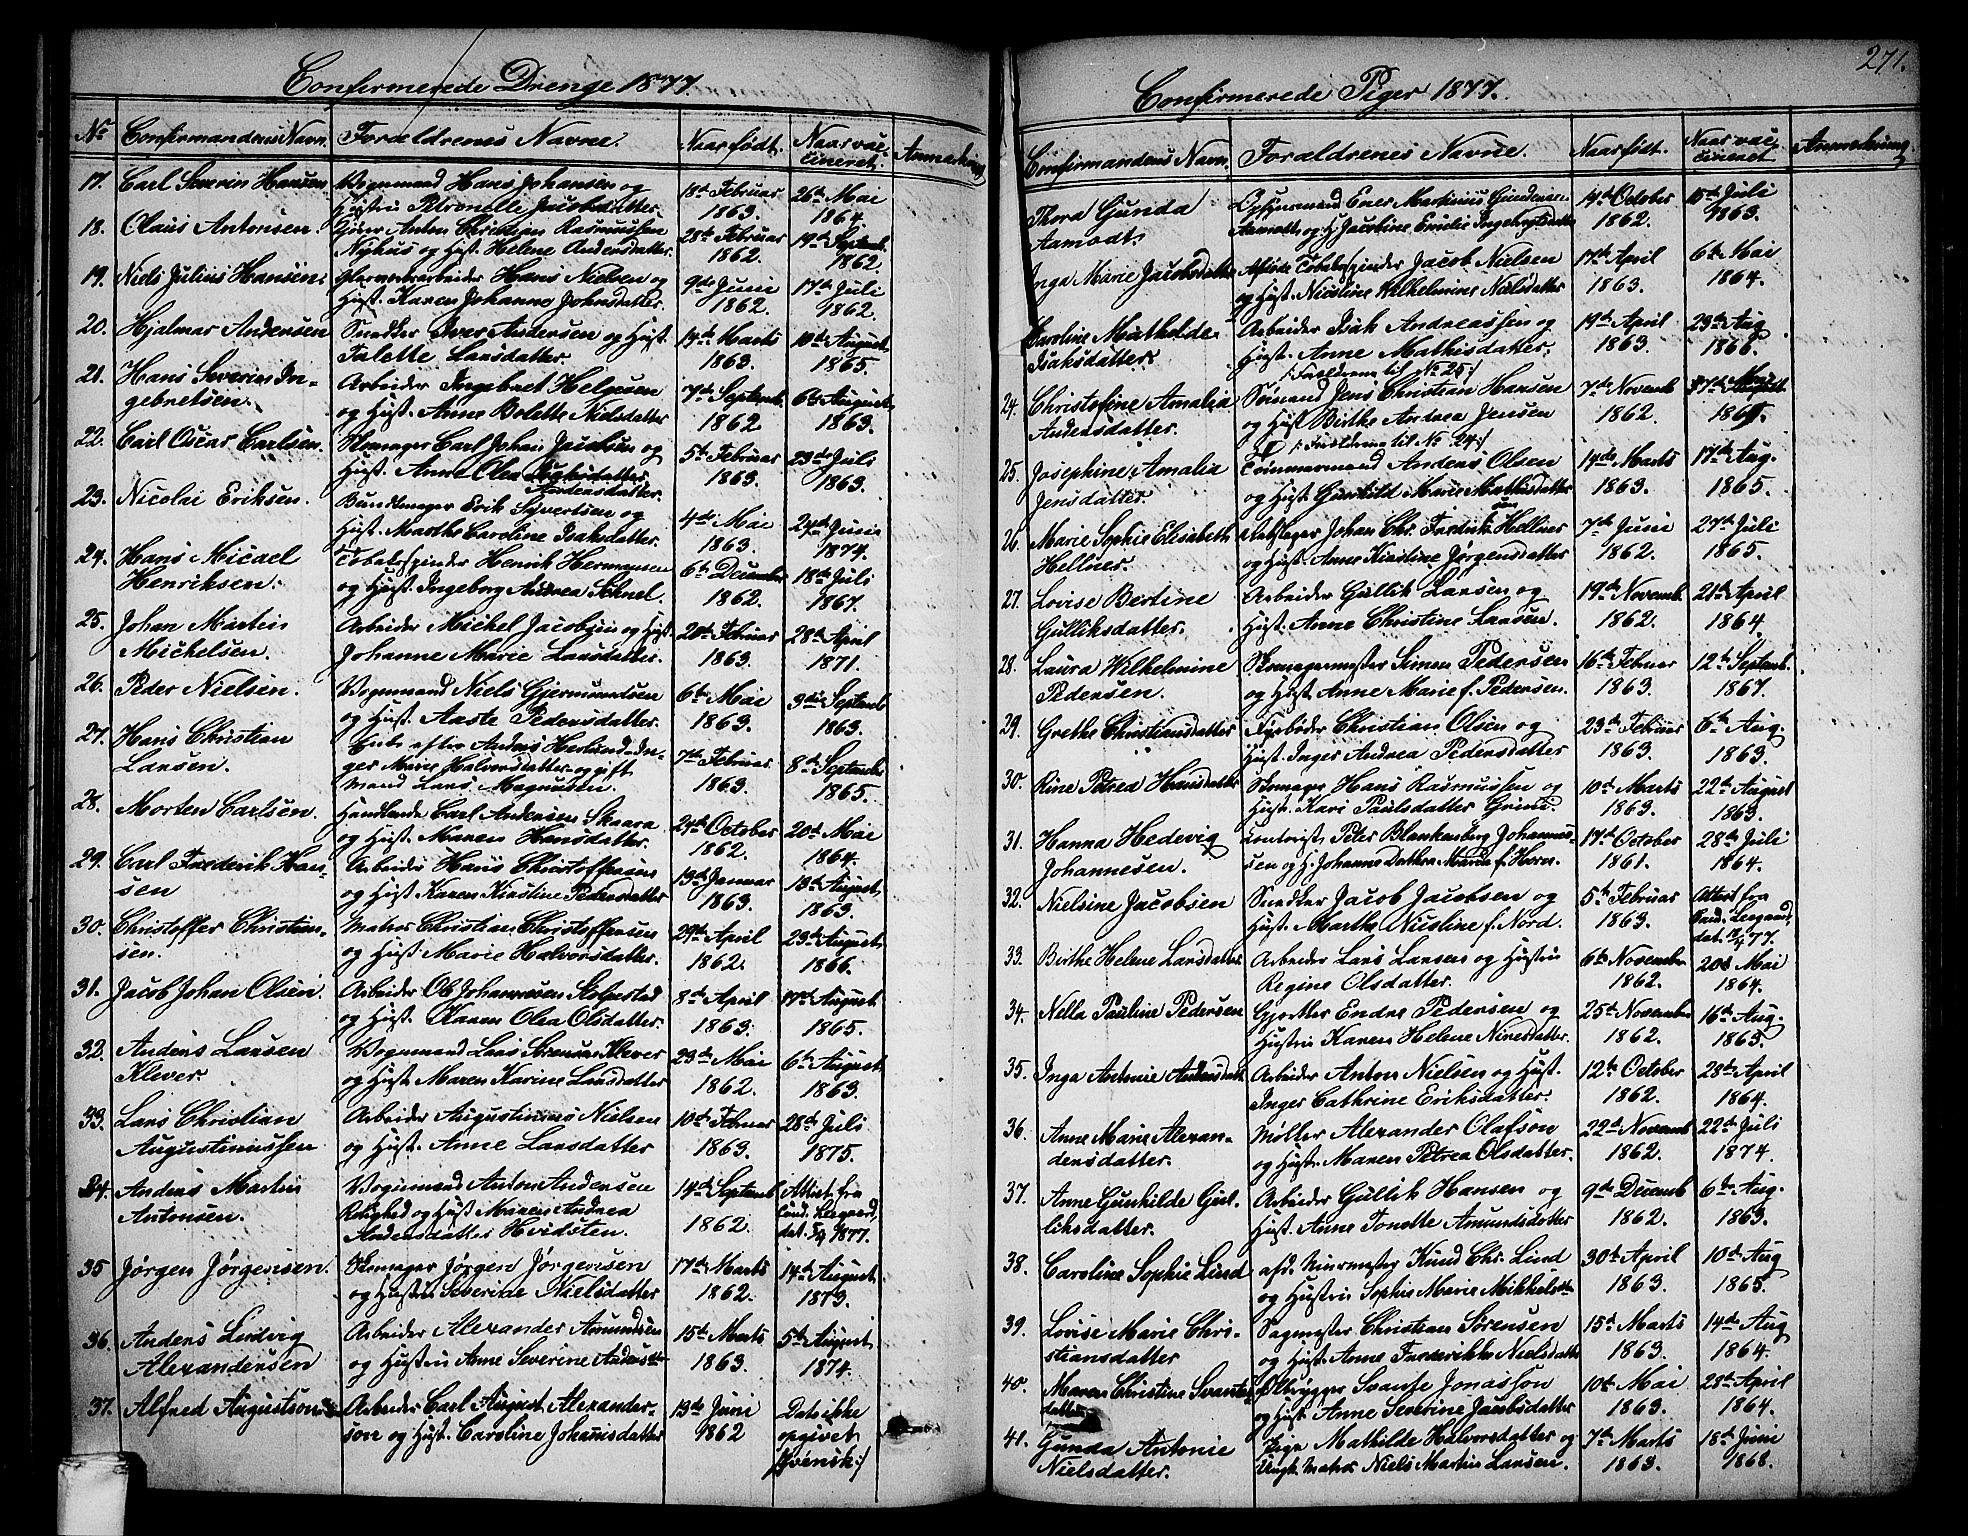 Confirmerede Drenge 1877.
No Confirmandens Navn. Forældrenes Navne. Naar født. Naar vac-
cineret. Anmærkning
17. Carl Severin Hansen Vognmand Hans Johansen og 18de Februar 26de Mai
Hustru Petronelle Jacobsdatter. 1863. 1864.
18. Olaus Antonsen. Anton Christian Rasmussen 28de Februar 19de Septemb.
Nyhus og Hust. Helene Andersdatter. 1862. 1862.
19. Niels Julius Hansen. Glarverksarbeider Hans Nielsen og 9de Juni 17de Juli
Hust. Karen Johanne Johnsdatter. 1862. 1862.
20. Hjalmar Andersen Snedker Iver Andersen og Hust. 14de Marts 10de August
Talette Larsdatter. 1863. 1865.
21. Hans Severin In- Arbeider Ingebret Helgesen 7de Septemb. 6te August
gebretsen. og Hust. Anne Bolette Nielsdatter 1862 1863.
22. Carl Oscar Carlsen. Skomager Carl Johan Jacobsen og 5te Februar 23de Juli
Hust. Anne Olea 1863. 1863.
Andersdatter.
23. Nicolai Eriksen. Bundtmager Erik Syvertsen og 4de Mai 24de Juni
Hust. Marthe Caroline Isaksdatter. 1863. 1874.
24. Hans Micael Tobakspinder Henrik Hermansen 6te December 18de Juli
Henriksen. og Hust. Ingeborg Andrea Schnel. 1862. 1867.
25. Johan Martin Arbeider Michel Jacobsen og Hust. 20de Februar 28de April
Michelsen. Johanne Marie Larsdatter. 1863. 1871.
26. Peder Nielsen. Vognmand Niels Gjermundsen 6te Mai 3die Septemb
og Hust. Aaste Pedersdatter. 1863. 1863.
27. Hans Christian Enke efter Anders Herlund In-
Larsen. ger Marie Halvorsdatter og gift 7de Februar 8de Septemb.
Mand Lars Magnussen. 1863. 1865.
28. Morten Carlsen. Handlende Carl Andersen Skaara 24de October 20de Mai
og Hust. Maren Hansdatter. 1862. 1864.
29. Carl Frederik Han- Arbeider Hans Christoffersen 13de Januar 13de August
sen og Hust. Karen Kirstine Pedersdatter 1863. 1863.
30. Christoffer Christian- Matros Christian Christoffersen 29de April 23de August
sen. og Hust. Marie Halvorsdatter. 1862. 1866.
31. Jacob Johan Olsen. Arbeider Ole Johannesen Stolpestad 8de April 17de August
og Hust. Karen Olea Olsdatter. 1863. 1865.
32. Anders Larsen Vognmand Lars Sørensen Klever 23de Mai 6te August
Klever. og Hust. Maren Karine Larsdatter 1862. 1863.
33. Lars Christian Arbeider Augustinus Nielsen 10de Februar 28de Juli
Augustinussen og Hust. Anne Larsdatter 1863. 1875.
34. Anders Martin Vognmand Anton Andersen 14de Septemb. Attest fra
Antonsen. Rolighed og Hust. Maren Andrea 1862. Cand. Leegaard,
Andersdatter Hvidsten. dat. 5/9 1877.
35 Jørgen Jørgensen. Skomager Jørgen Jørgensen 17de Marts 14de August
og Hustru Severine Nielsdatter 1862. 1873.
36. Anders Ludvig Arbeider Alexander Amundsen 15de Marts 5te August
Alexandersen og Hustru Anne Severine Andersdtr 1863. 1874.
37. Alfred Augustson Arbeider Carl August Alexander- 13de Juni Dato ikke
son og Hust. Caroline Johannisdatter 1862 opgivet
Svensk:/
271.
Confirmerede Piger 1877.
Confirmandens Navn. Forældrenes Navne. Naar født. Naar vac-
cineret Anmærkning
Thora Gunda Opsynsmand Even Martinius Gundersen 14de October 15de Juli
Aamodt. Aamodt og H. Jacobine Emilie Ingebregtsdatter 1862. 1863.
Inga Marie Jacobsdatter Afsatte Tobakspinder Jacob Nielsen 17de April 6te Mai
og Hust. Nicoline Wilhelmine Nielsdatter 1863. 1864.
Caroline Mathilde Arbeider Isak Andreassen og 19de April 23de Aug
Isaksdatter. Hust. Anne Mathisdatter. 1863. 1866.
/: Forældrene til No 25:/
24. Christofine Amalia Sømand Jens Christian Hansen 7de Novemb
Andersdatter. og Hust. Birthe Andrea Jensen 1862.
/: Forældrene til No 24:/
25. Josephine Amalia Tømmermand Anders Olsen 14de Marts 17de Aug.
Jensdatter. og Hust. Gunhild Marie Mathisdatter 1863. 1865.
26. Marie Sophie Elisabeth Johan Chr. Fredrik Hellner 7de Juni 27de Juli
Hellner. og Hust. Anne Kirstine Jørgensdatter 1862. 1865.
27. Lovise Bertine Arbeider Gullik Larsen og 19de Novemb. 21de April
Gulliksdatter. Hust. Anne Christine Larsen. 1862. 1864.
28. Laura Wilhelmine Skomagermester Simon Pedersen 16de Februar 12te Septemb.
Pedersen. og Hust. Anne Marie f. Pedersen. 1863. 1867.
29. Grethe Christiansdatter Fyrbøder Christian Olsen og 23de Februar 6te Aug.
Hust. Inger Andrea Pedersdatter 1863. 1863.
30. Rine Petrea Hansdatter Skomager Hans Rasmussen og 10de Marts 22de August
Hust. Kari Paulsdatter Grini 1863. 1863.
31. Hanna Hedevig Contorist Peter Blankenborg Johannes- 17de October 28de Juli
Johannesen. sen og H. Johanne Dorthea Maria f. Herre. 1861. 1864.
32. Nielsine Jacobsen Snedker Jacob Jacobsen og 5te Februar Attest fra
Hust. Marthe Nicoline f. Nord. 1863. Cand. Leegaard,
dat. 77.
33. Birthe Helene Larsdatter. Arbeider Lars Larsen og Hustru 6te November 20de Mai
Regine Olsdatter. 1862. 1864.
34. Nella Pauline Pedersen Gjortler Endre Pedersen og 25de November 16de Aug.
Hustru Karen Helene Nirsdatter. 1862. 1863.
35. Inga Antonie Andersdatt. Arbeider Anton Nielsen og Hust. 12te October 28de April
Inger Cathrine Eriksdatter. 1862. 1864.
36. Anne Marie Alexan- Møller Alexander Olafson 22de Novemb 22de Juli
dersdatter. og Hust. Maren Petrea Olsdatter. 1862. 1874.
37. Anne Gunhilde Gul- Arbeider Gullik Hansen og 9de Decemb 6te Aug.
liksdatter. Hust. Anne Tonette Amundsdatter 1862. 1863.
38. Caroline Sophie Lund afd. Murmester Knud Chr. Lund 30de April 10de Aug
og Hustru Sophie Marie Mikkelsdtr 1863. 1865.
39. Lovise Marie Chri- Sagmester Christian Sørensen 15de Marts 14de Aug
stiansdatter og Hust. Anne Frederikke Nielsdatter 1863. 1864.
40. Maren Christine Svants- Ølbrygger Svante Jonasson 10de Mai 28de April
datter og Hust. Anne Severine Jacobsdatter 1863. 1864.
41. Gunda Antonie Pige Mathilde Halvorsdatter og 7de Marts 18de Juni
Nielsdatter. Ungk. Matros Niels Martin Larsen. 1863. 1868.